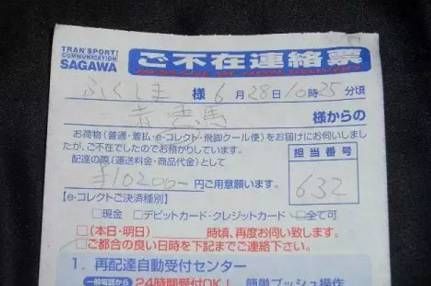 TRANSPORT/
COMMUNICATION
SAGAWA
ご不在連絡票
ふくしま 様 6月28日10時25分頃
様からの
お荷物(普通・着払・e-コレクト・飛脚クール便)をお届けにお伺いしまし
たが、ご不在でしたのでお預かりしています。
配達の際(運送料金・商品代金)として
¥10200- 円ご用意願います。
担当番号
632
【e-コレクトご決済種別】
□現金 □デビットカード・クレジットカード □全て可
□(本日・明日) 時頃、再度お伺い致します。
□ご都合の良い日時を下記までご連絡下さい。
1. 再配達自動受付センター
一般電話から 24時間受付OK! 簡単プッシュ操作